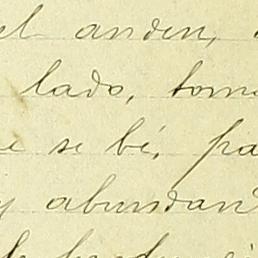 el anden,
lado, tom
e se bé, pa
y abundan